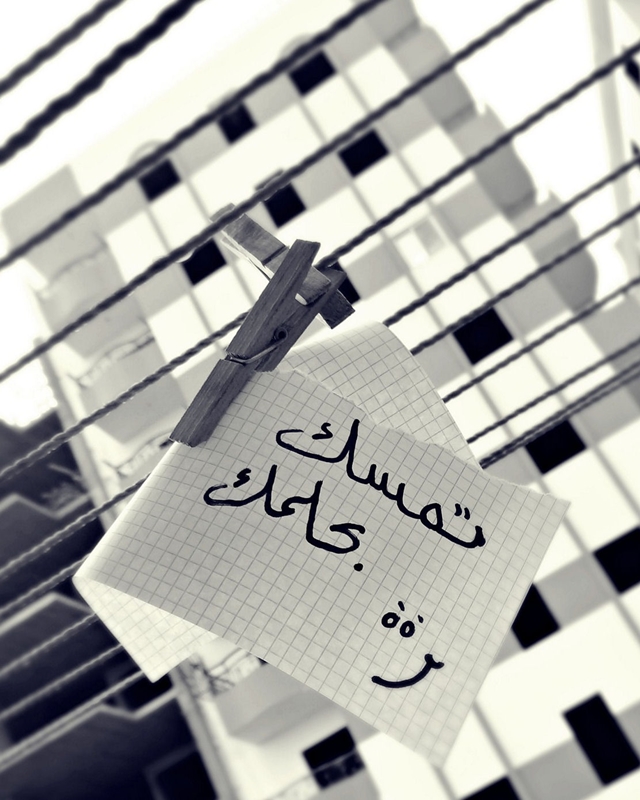 تمسك
بحلمك